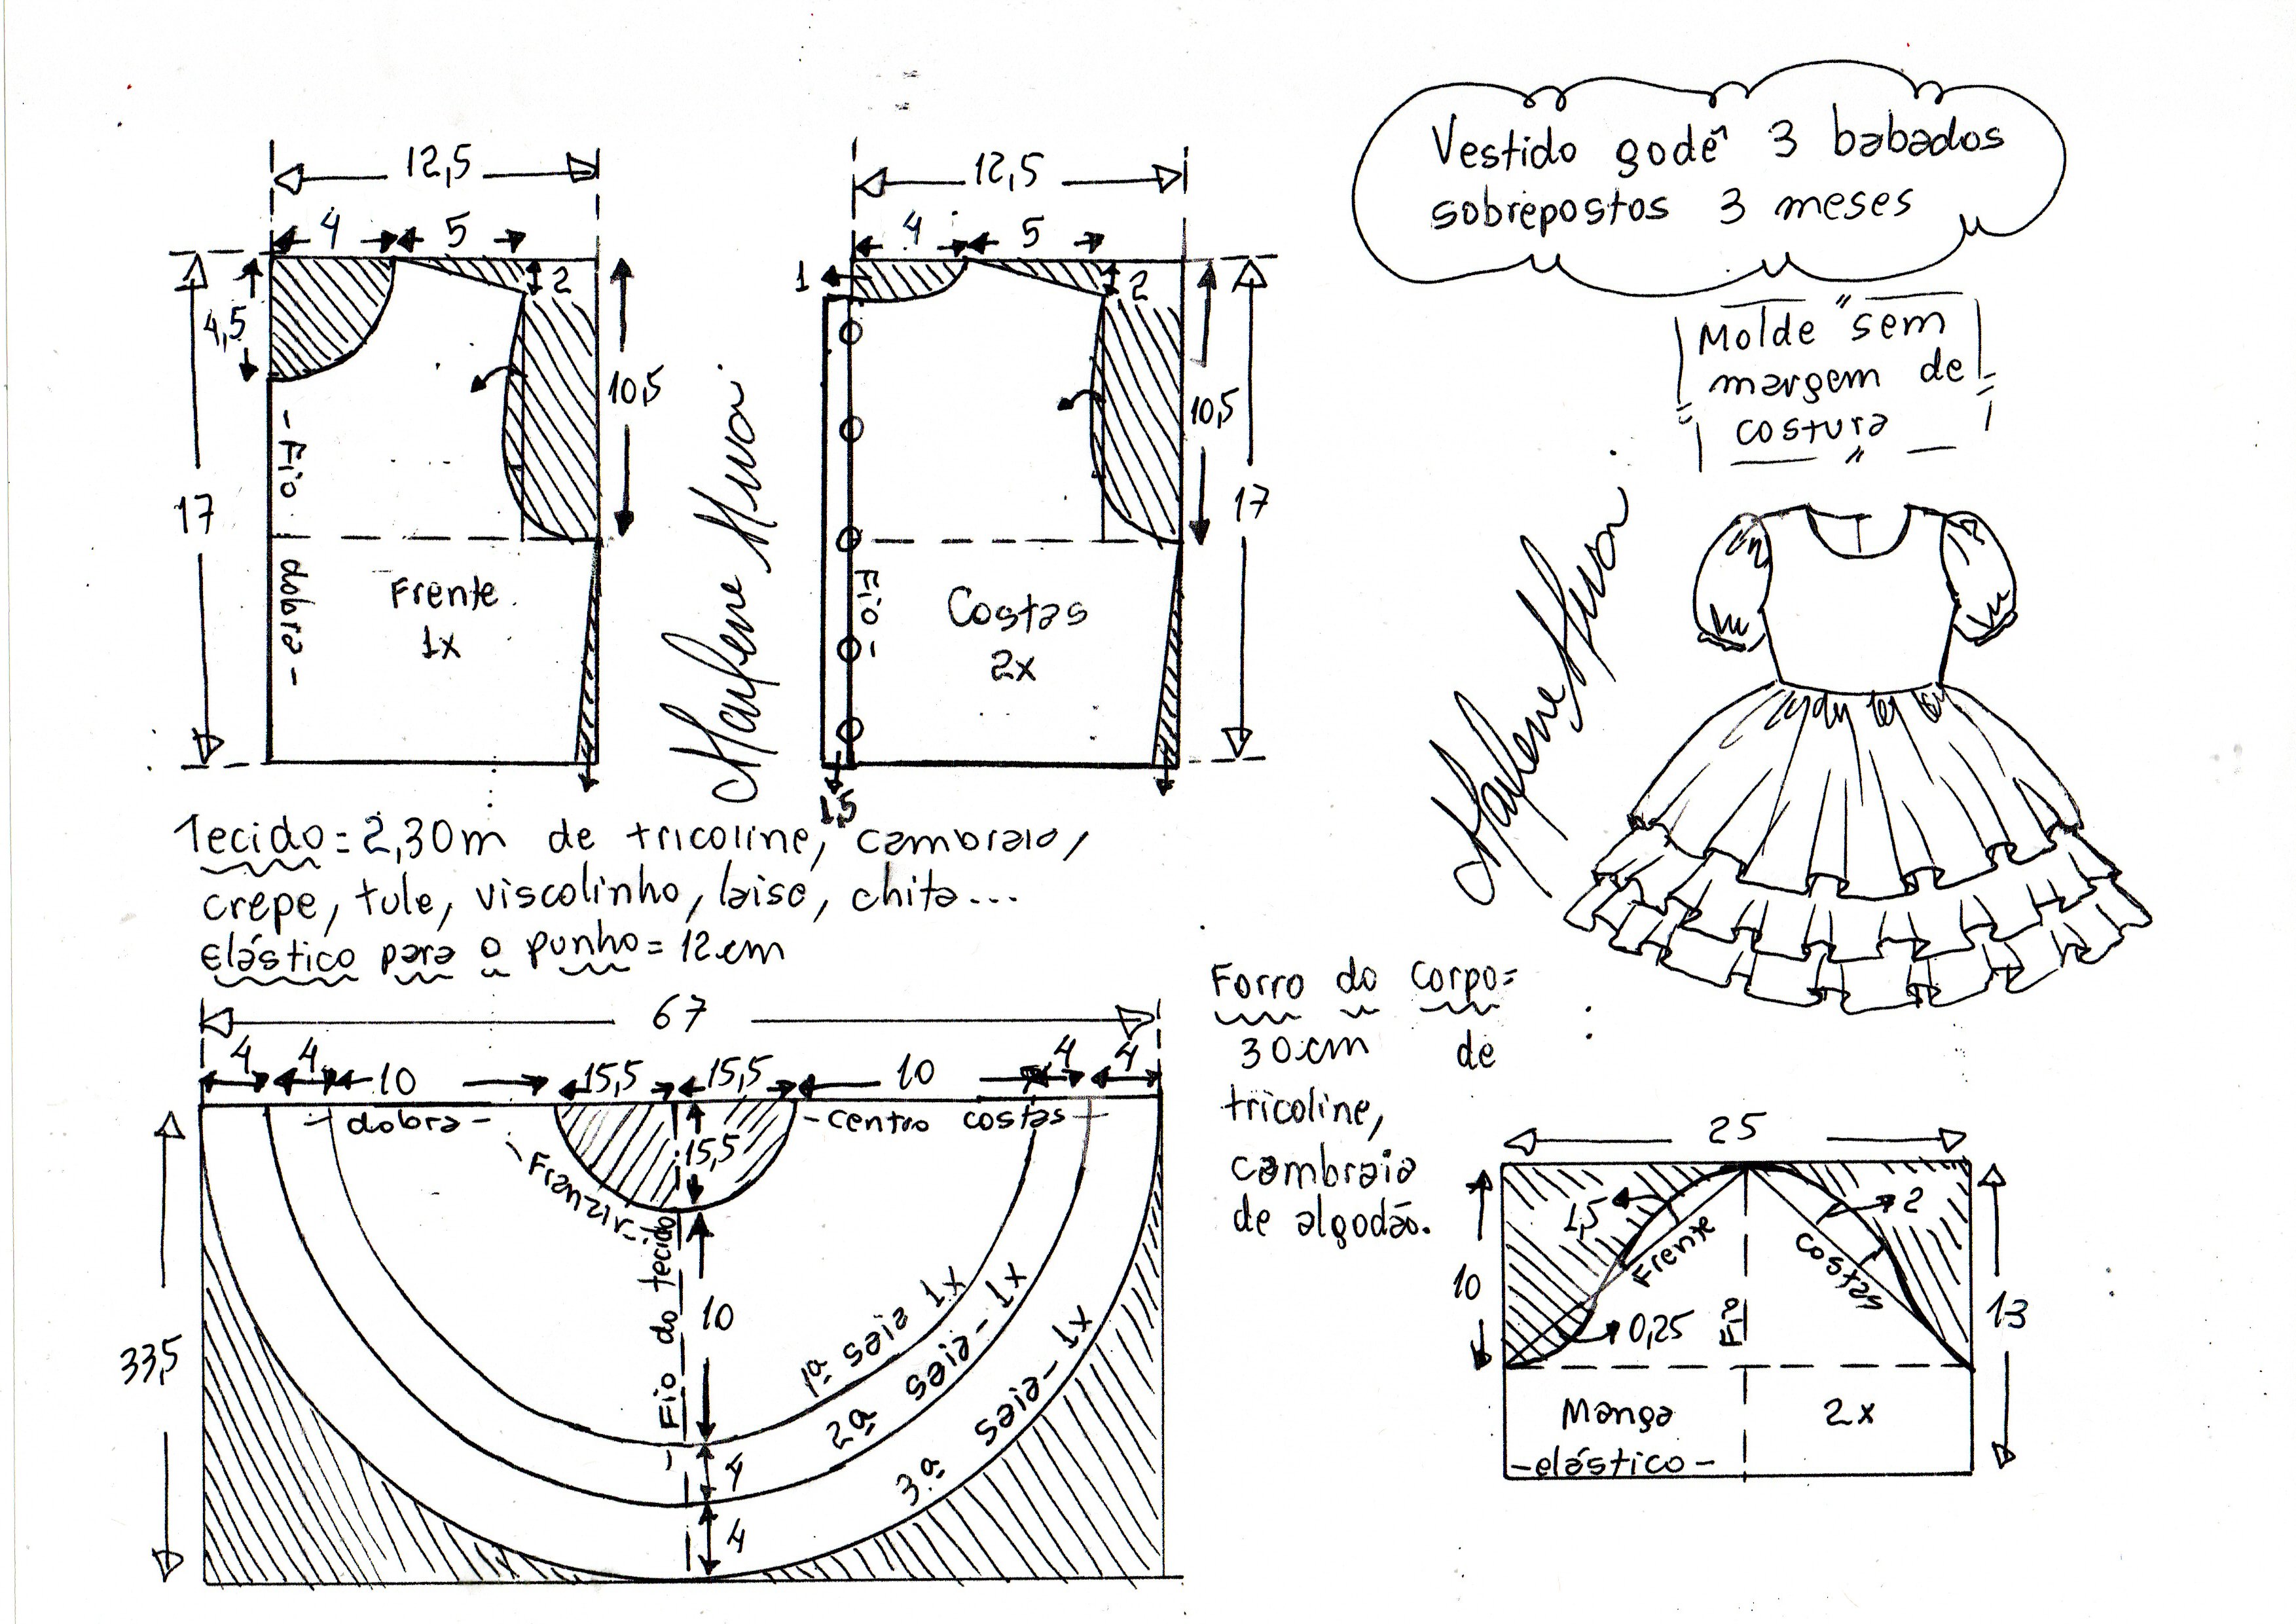 Vestido godê 3 babados
sobrepostos 3 meses
Molde "sem
margem de
costura
"
12,5
4
5
2
4,5
10,5
17
-Fio dobra-
Frente
1x
12,5
4
5
1
2
10,5
17
Fio-
Costas
2x
1,5
Tecido=2,30m de tricoline, cambraia,
crepe, tule, viscolinho, laise, chita...
elástico para o punho=12cm
67
4
4
10
15,5
15,5
10
4
4
-dobra-
-centro costas-
15,5
-Franzir-
-Fio do tecido
10
4
4
33,5
1ª saia 1x
2ª saia-1x
3ª saia-1x
Forro do corpo=
30cm de
tricoline,
cambraia
de algodão.
25
1,5
2
Frente
Costas
10
0,25
Fio
13
Manga 2x
-elástico-